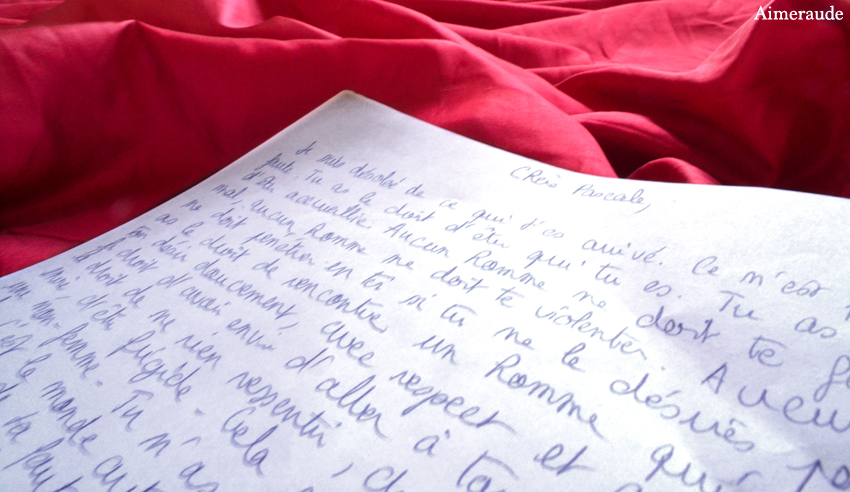 Aimeraude
Chère Pascale,
Je suis désolé de ce qui t'es arrivé. Ce n'est
faute. Tu as le droit d'être qui tu es. Tu as
d'être accueillie. Aucun homme ne doit te
mal, aucun homme ne doit te violenter. Aucun
ne doit pénétrer en toi si tu ne le désires
as le droit de rencontrer un homme qui
ton désir doucement, avec respect et
droit d'avoir envie d'aller à
le droit de ne rien ressentir,
d'être frigide. Cela
une non-femme. Tu n'as
c'est le monde